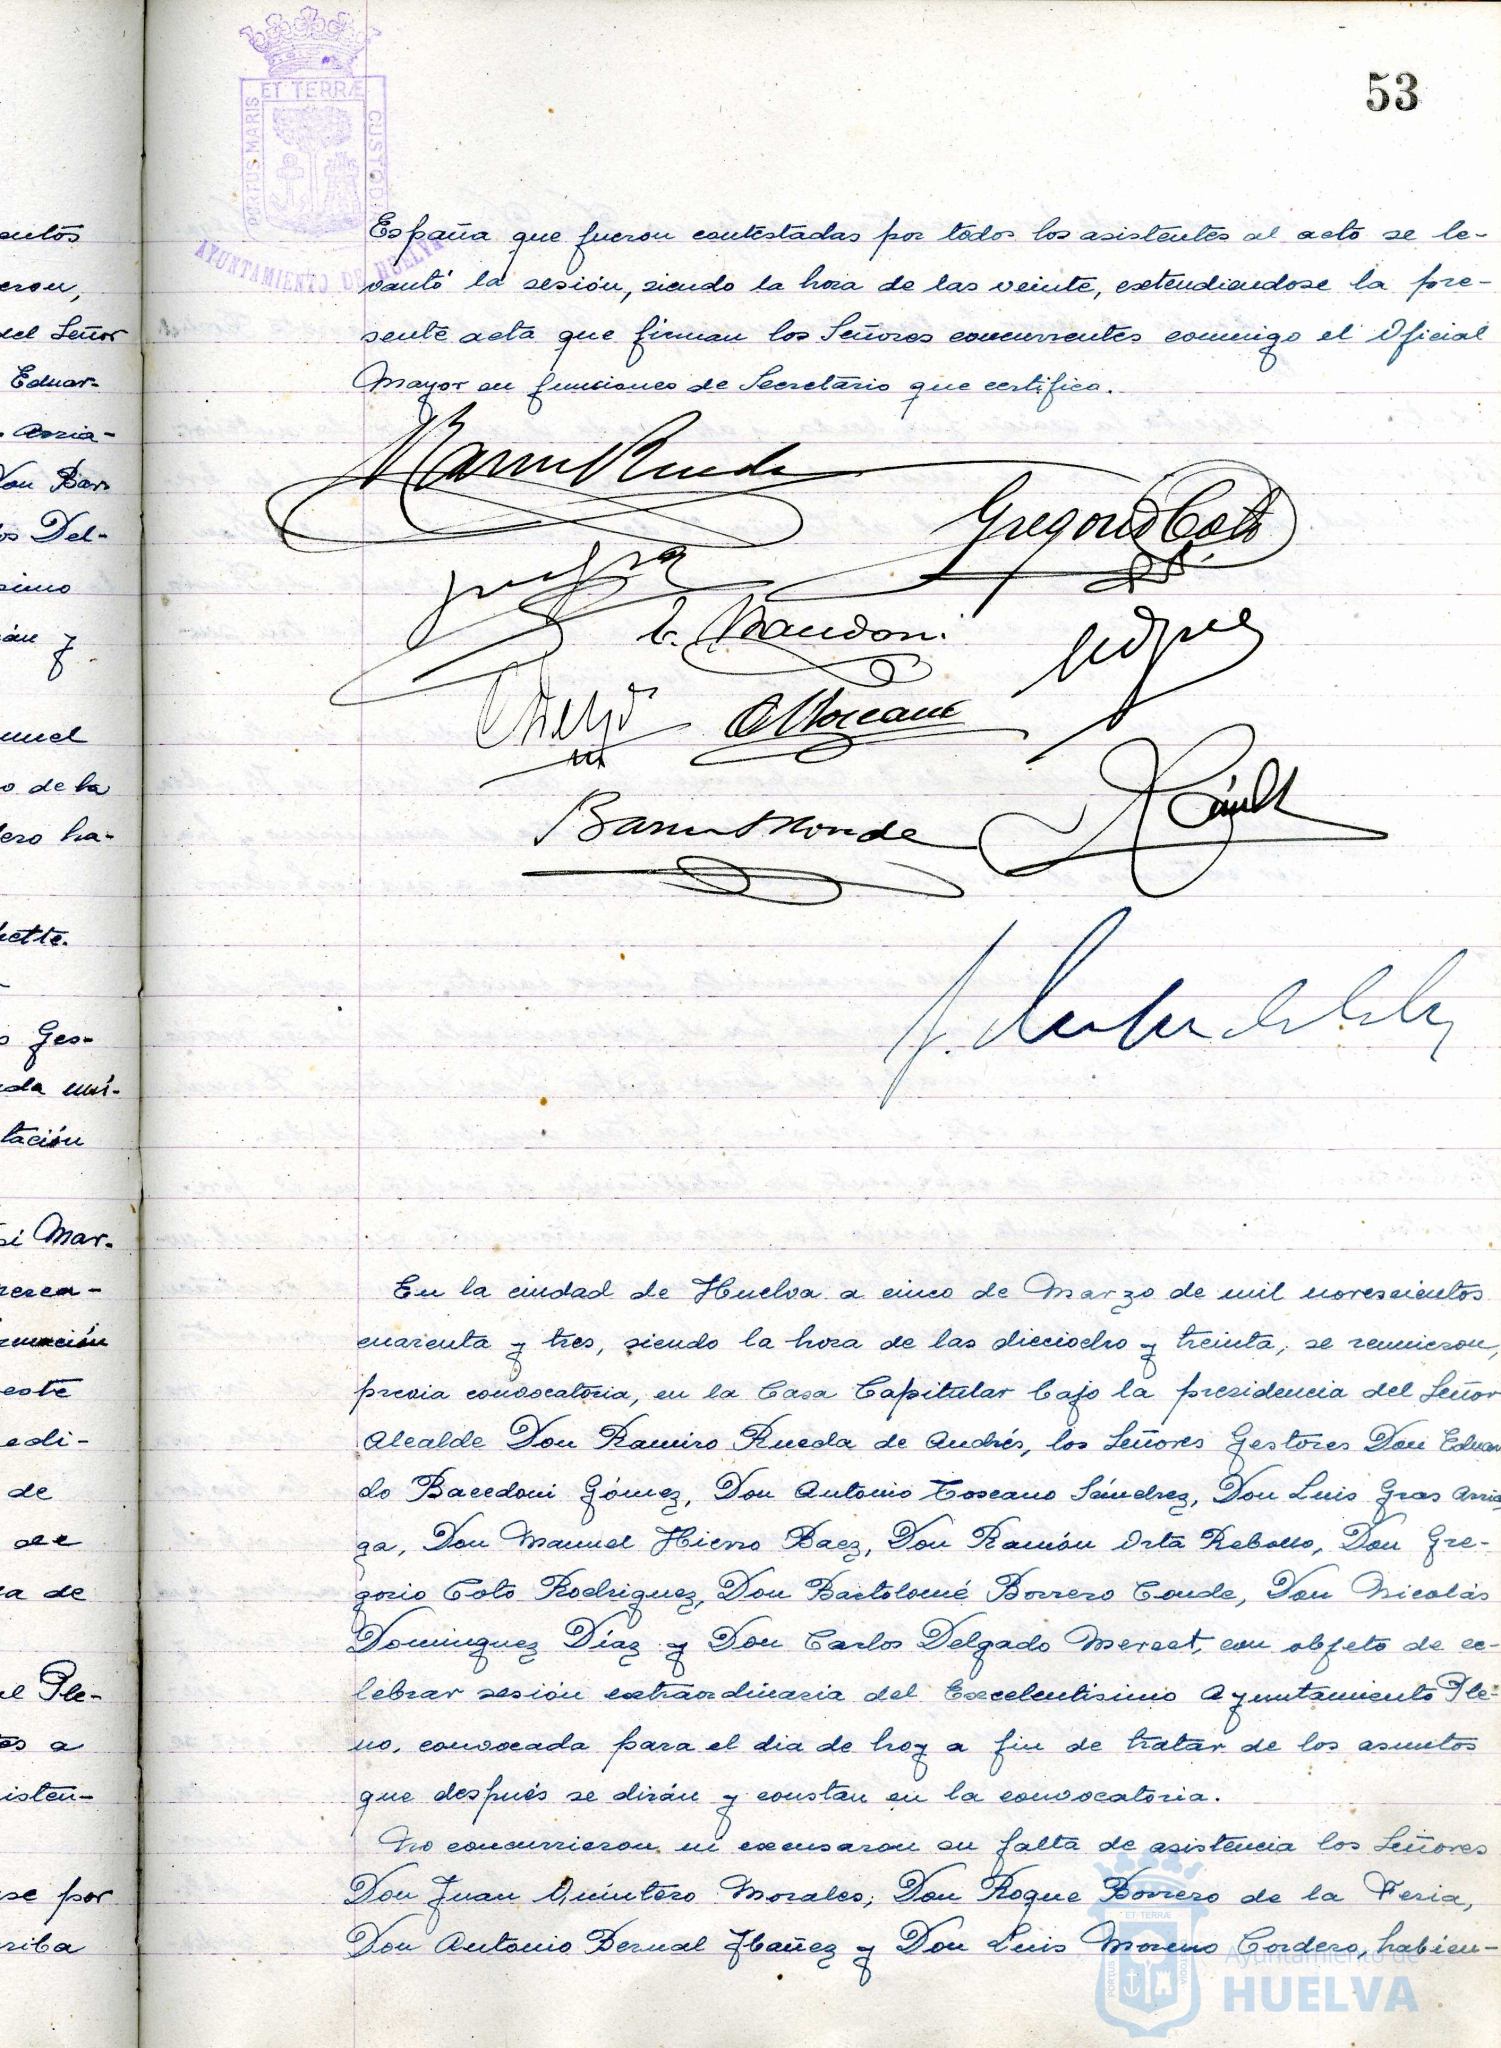 53
ET TERRÆ
PORTUS MARIS
CUSTODIA
AYUNTAMIENTO DE HUELVA
España que fueron contestadas por todos los asistentes al acto se le-
vantó la sesión, siendo la hora de las veinte, extendiendose la pre-
sente acta que firman los Señores concurrentes conmigo el Oficial
Mayor en funciones de Secretario que certifica.
Gregorio Coto
En la ciudad de Huelva a cinco de Marzo de mil novescientos
cuarenta y tres, siendo la hora de las dieciocho y treinta, se reunieron,
previa convocatoria, en la Casa Capitular bajo la presidencia del Señor
Alcalde Don Ramiro Rueda de Andrés, los Señores Gestores Don Eduar
do Bacedoni Gómez, Don Antonio Toscano Sánchez, Don Luis Gras Arria
ga, Don Manuel Hierro Baez, Don Ramón Orta Rebollo, Don Gre-
gorio Coto Rodriguez, Don Bartolomé Borrero Conde, Don Nicolás
Dominguez Díaz y Don Carlos Delgado Mercet, con objeto de ce-
lebrar sesión extraordinaria del Excelentisimo Ayuntamiento Ple-
no, convocada para el dia de hoy a fin de tratar de los asuntos
que después se dirán y constan en la convocatoria.
No concurrieron ni excusaron su falta de asistencia los Señores
Don Juan Quintero Morales, Don Roque Borrero de la Feria,
Don Antonio Bernal Ibañez y Don Luis Moreno Cordero, habien-
Ayuntamiento de
HUELVA
del Señor
Eduar-
Arria-
Don Bar
os Del-
o de la
ero ha-
Ges-
tación
Mar-
este
edi-
de
de
a de
Ple-
a
se por